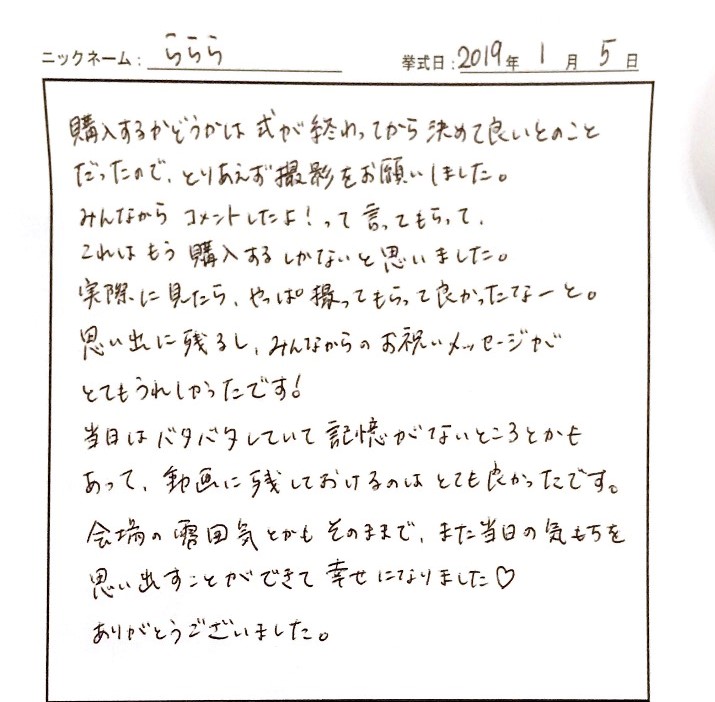 ニックネーム: ららら
挙式日: 2019年 1月 5日
購入するかどうかは 式が 終わってから 決めて良いとのこと
だったので、とりあえず撮影をお願いしました。
みんなから コメントしたよ!って 言ってもらって、
これは もう 購入する しかないと思いました。
実際に見たら、やっぱ撮ってもらって良かったなーと。
思い出に残るし、みんなからの お祝いメッセージが
とてもうれしかったです!
当日は バタバタしていて 記憶がないところとかも
あって、動画に残しておけるのは とても良かったです。
会場の雰囲気とかも そのままで、また当日の気もちを
思い出すことができて 幸せになりました♡
ありがとうございました。